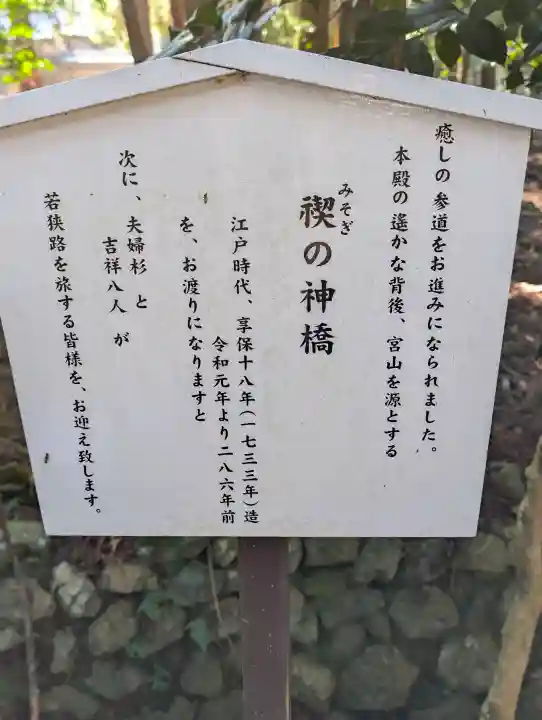 癒しの参道をお進みになられました。
本殿の遙かな背後、宮山を源とする
みそぎ
禊の神橋
江戸時代、享保十八年(一七三三年)造
令和元年より二八六年前
を、お渡りになりますと
次に、夫婦杉 と
吉祥八人 が
若狭路を旅する皆様を、お迎え致します。